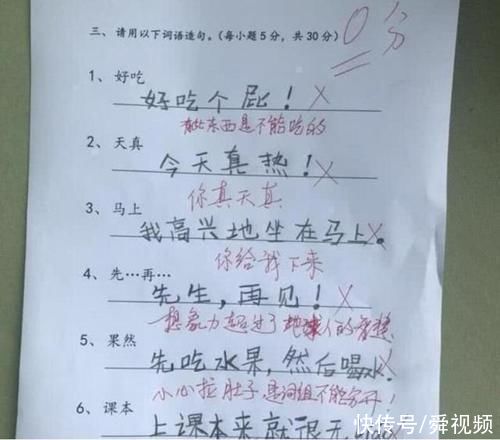 三、请用以下词语造句。(每小题5分,共30分)
0分
1、好吃
好吃个屁!
有些东西是不能吃的
2、天真
今天真热!
你真天真
3、马上
我高兴地坐在马上。
你给我下来
4、先……再……
先生,再见!
想象力超过了地球人的智慧
5、果然
先吃水果,然后喝水
小心拉肚子 是词组不能分开!
6、课本
上课本来就很
快传号/舜视频